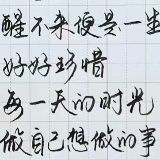 醒不来便是一生
好好珍惜
每一天的时光
做自己想做的事